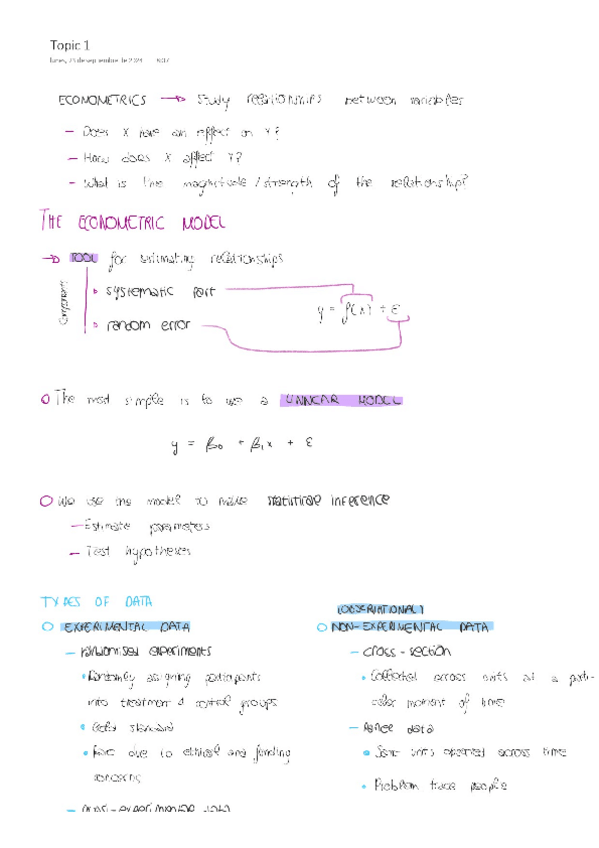 Topic 1
lunes, 23 de septiembre de 2024
ECONOMETRICS → study relationships between variables
- Does X have an effect on Y?
- How does X affect Y?
- What is the magnitude / strength of the relationship?
THE ECONOMETRIC MODEL
→ TOOL for estimating relationships
Components
systematic part
y = f(x) + ε
random error
The most simple is to use a LINNEAR MODEL
y = β₀ + β₁x + ε
We use the model to make statistical inference
- Estimate parameters
- Test hypotheses
TYPES OF DATA
EXPERIMENTAL DATA
- randomised experiments
• Randomly assigning participants
into treatment & control groups
• Gold standard
• Rare due to ethical and funding
concerns
- quasi-experimental data
(OBSERVATIONAL)
NON-EXPERIMENTAL DATA
- cross-section
• Collected across units at a parti-
cular moment of time
- Panel data
• Same units observed across time
• Problem trace people